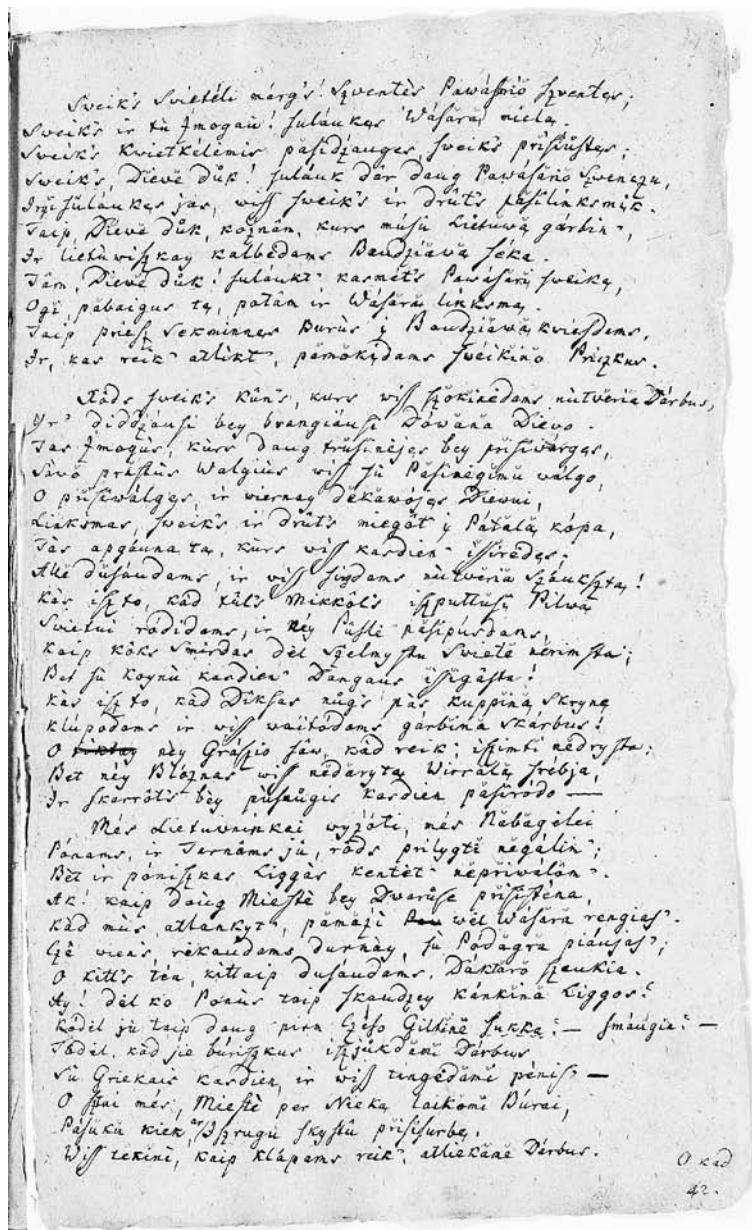 Sweik's Swietéli márg's! Szwentès Pawásario szwentęs;
Sweik's ir tù Zmogau! sulaukęs Wásarą mielą.
Sweik's Kwietkélėmis pasidźaugęs, sweik's prisiůstęs;
Sweik's, Diewe důk! sulauk dár daug Pawásario Szwenczu,
Irgi sulaukęs jas, wiss sweik's ir drút's pasilinksmįk.
Taip Diewe důk, kożnám, kurs músû Lietuwą gárbin',
Ir lietuwiszkay kalbėdams Baudźiawą séka.
Tám, Diewe důk! sulaukt' kasmet's Pawásarį sweiką,
Ogi, pabaigus tą, potám ir Wásarą linksmą.
Taip priesz Sekminnes Burùs į Baudźiawą kwiesdams,
Ir, kas reik' atlikt', pamokįdams sweikino Priczkus.
Ráds sweik's Kûn's, kurs wiss szokinėdams nutweria Dárbus,
Yr' diddźausi bey brangiausi Dówana Diewo.
Tas Zmogùs, kurs daug trusinėjęs bey prisiwargęs,
Sawo prastùs Walgius wiss su Pasimėgimu walgo,
O prisiwalgęs, ir wiernay dėkawojęs Diewui,
Linksmas, sweik's ir drut's miegót' į Patalą kópa,
Tás apgauna tą, kurs wiss kasdien' issirėdęs,
Alle dusaudams, ir wiss sirgdams nutweria Száuksztą!
Kás isz to, kad tûl's Mikkól's iszputtusį Pilwą
Swietui ródidams, ir ney Puslė pasipusdams,
Kaip kóks Smirdas dėl Szelmysczu Swietè nerimsta;
Bet su Koynu kasdien' Dangaus issigásta!
Kás isz to, kad Diksas nůg's pás kuppiną Skrynę
Klúpodams ir wiss waitodams garbina Skarbus!
O ney Grászio saw, kad reik' iszimti nedrysta;
Bet ney Bloznas wiss nedarytą Wirralą srebja,
Ir skarróts bey pusnůgis kasdien pasiródo —
Més Lietuwninkai wyźóti, més Nabagėlei
Pónams, ir Tarnáms jû, ráds prilygti negálim';
Bet ir póniszkas Liggas kentėt' nepriwálom'.
Ak! kaip daug Miestè bey Dwarůse prisistena,
Kad mus atlankyt', pamaźi wėl Wásara rengias'.
Czè wiens, rėkaudams durnay, sù Podágra piaujas';
O kitt's tén, kittaip dusaudams, Daktaro szaukia.
Ay! dėl ko Ponùs taip skaudźey kánkina Liggos?
Kodėl jû taip daug pirm Czėso Giltinė sukka? — smaugia? —
Todėl, kad jie buriszkus iszjůkdami Dárbus
Sù Griekais kasdien, ir wiss tingėdami pėnis' —
O sztai més, Miestè per Nieką laikomi Búrai,
Pásukû kiek, ar Iszrugû skystû prisisurbę,
Wiss tekini, kaip klápams reik', atliekame Dárbus.
O kad
42.